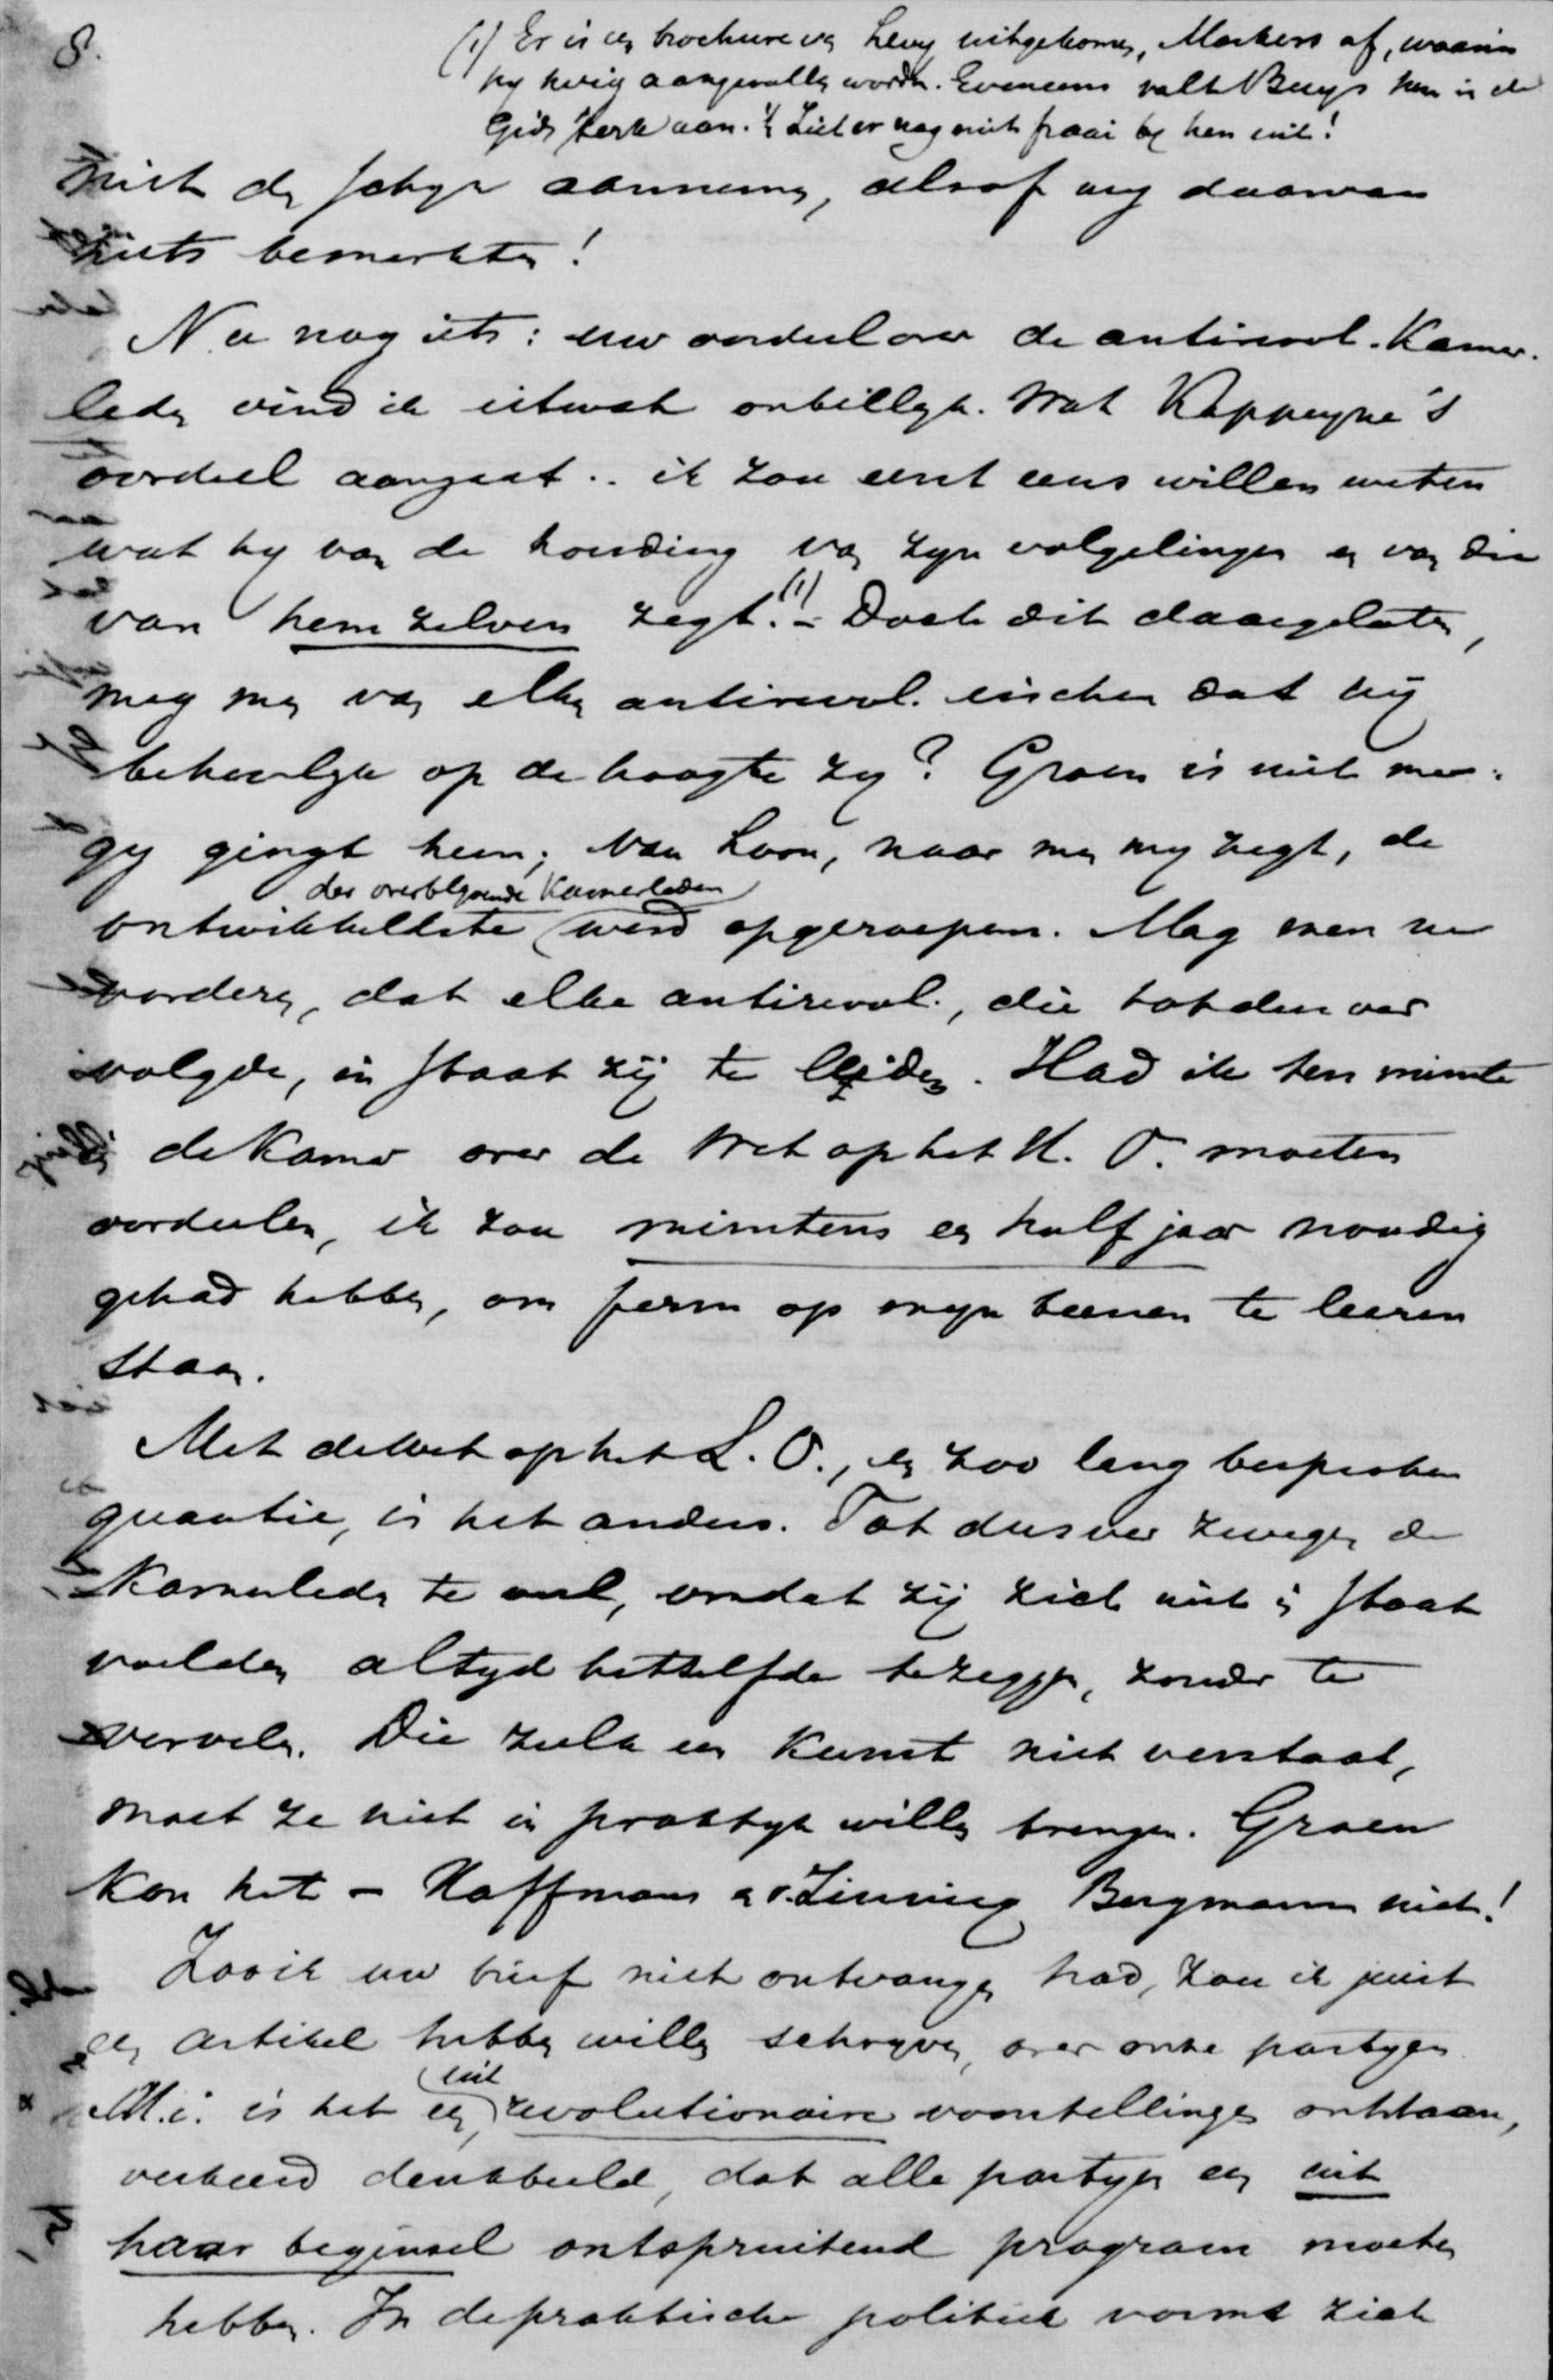 8.
(1) Er is een brochure van Levy uitgekomen, Maskers af, waarin
hy hevig aangevallen wordt. Eveneens valt Buys hen in de
Gids sterk aan. 't Ziet er nog niet fraai by hen uit!
niet den schyn aannemen, alsof wy daarvan
niets bemerkten!
Nu nog iets: uw oordeel over de antirevol. Kamer-
leden vind ik ietwat onbillyk. Wat Kappeyne's
oordeel aangaat .. ik zou eerst eens willen weten
wat hy van de houding van zyn volgelingen en van die
van hem zelven zegt.(1) – Doch dit daargelaten,
mag men van elken antirevol. eischen dat hij
behoorlyk op de hoogte zy? Groen is niet meer:
gy gingt heen; Van Loon, naar men my zegt, de
ontwikkeldste der overblyvende Kamerleden werd opgeroepen. Mag men nu
vorderen, dat elke antirevol., die tot dus ver
volgde, in staat zij te leiden. Had ik ten minste
in de Kamer over de Wet op het H. O. moeten
oordeelen, ik zou minstens een half jaar noodig
gehad hebben, om ferm op myn beenen te leeren
staan.
Met de wet op het L. O., een zoo lang besproken
quaestie, is het anders. Tot dusver zwegen de
Kamerleden te veel, omdat zij zich niet in staat
voelden altyd hetzelfde te zeggen, zonder te
vervelen. Die zulk een kunst niet verstaat,
moet ze niet in praktyk willen brengen. Groen
kon het – Haffmans en v. Zinnicq Bergmann niet!
Zoo ik uw brief niet ontvangen had, zou ik juist
een artikel hebben willen schryven, over onze partyen.
M.i. is het een, uit revolutionaire voorstellingen ontstaan,
verkeerd denkbeeld, dat alle partyen een uit
haar beginsel ontspruitend program moeten
hebben. In de praktische politiek vormt zich